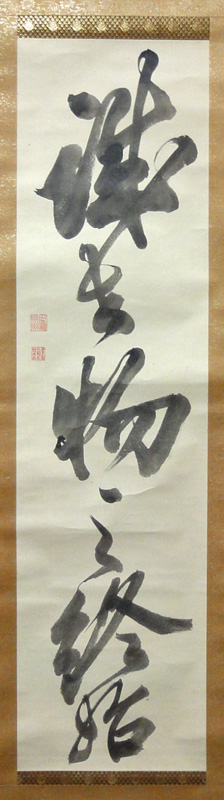 誠者物之終始